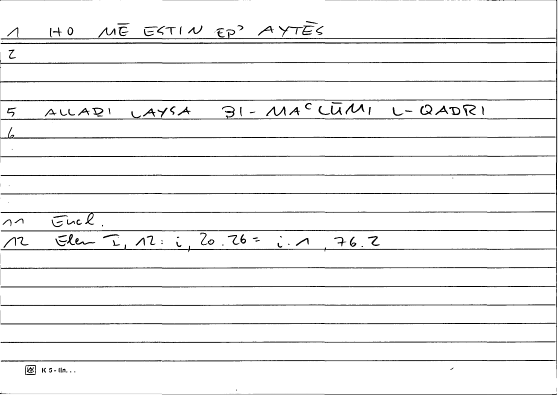 1 HO MĒ ESTIN EP' AYTĒS
2
5 ALLADI LAYSA BI-MAᶜLŪMI L-QADRI
6
11 Eucl.
12 Elem I, 12: i, 20.26 = i.1, 76.2
K 5 - lin...